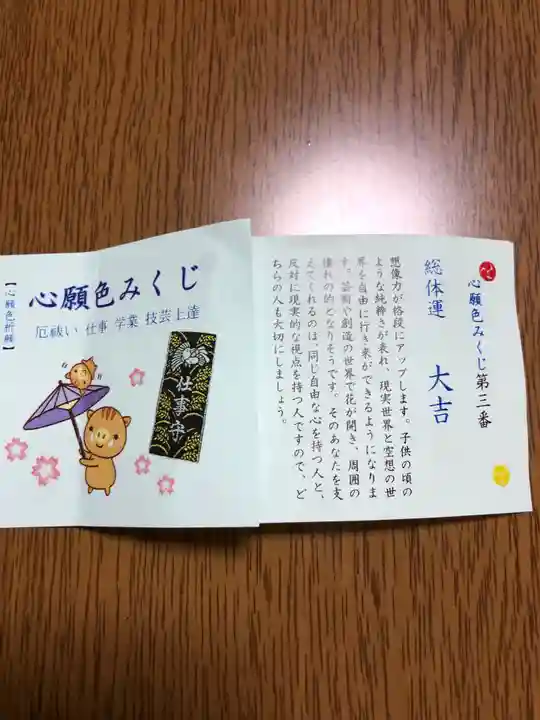 【心願色祈願】
心願色みくじ
厄祓い 仕事 学業 技芸上達
仕事守
心願色みくじ第三番
総体運 大吉
想像力が格段にアップします。子供の頃の
ような純粋さが表れ、現実世界と空想の世
界を自由に行き来ができるようになりま
す。芸術や創造の世界で花が開き、周囲の
憧れの的となりそうです。そのあなたを支
えてくれるのは、同じ自由な心を持つ人と、
反対に現実的な視点を持つ人ですので、ど
ちらの人も大切にしましょう。